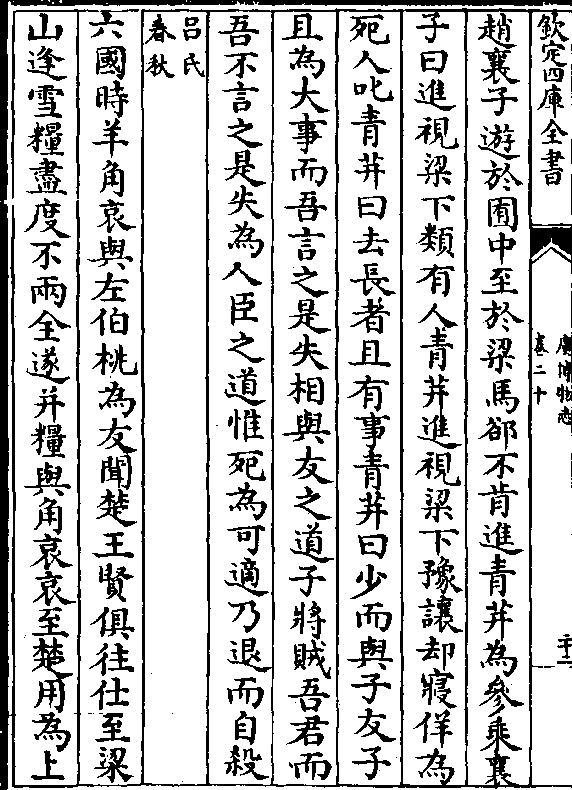 欽定四庫全書
廣博物志
卷二十
趙襄子遊於囿中至於梁馬郤不肯進青荓為參乘襄
子曰進視梁下類有人青荓進視梁下豫讓却寢佯為
死人叱青荓曰去長者且有事青荓曰少而與子友子
且為大事而吾言之是失相與友之道子將賊吾君而
吾不言之是失為人臣之道惟死為可適乃退而自殺
呂氏
春秋
六國時羊角哀與左伯桃為友聞楚王賢俱往仕至梁
山逢雪糧盡度不兩全遂并糧與角哀哀至楚用為上